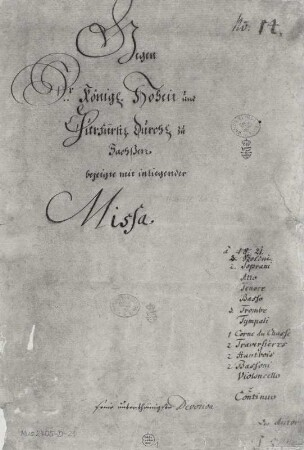 No: 14.
Gegen
Sr. Königl. Hoheit und
Churfürstl. Durchl. zu
Sachßen
bezeigte mit inliegender
Missa.
à 21
2. Soprani
Alto
Tenore
Basso
3 Trombe
Tympali
1 Corne du Chasse
2 Traversieri
2 Hautbois
2 Bassoni
Violoncello
e
Continuo
seine unterthänigste Devotion
der Autor
J. S.